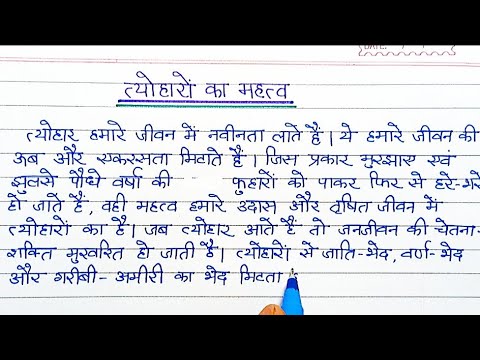 DATE:
त्योहारों का महत्व
त्योहार हमारे जीवन में नवीनता लाते हैं। ये हमारे जीवन की
ऊब और एकरसता मिटाते हैं। जिस प्रकार मुरझाए एवं
झुलसे पौधे वर्षा की फुहारों को पाकर फिर से हरे-भरे
हो जाते हैं, वही महत्व हमारे उदास और तृषित जीवन में
त्योहारों का है। जब त्योहार आते हैं तो जनजीवन की चेतना-
शक्ति मुखरित हो जाती है। त्योहारों से जाति-भेद, वर्ण-भेद
और गरीबी-अमीरी का भेद मिटता